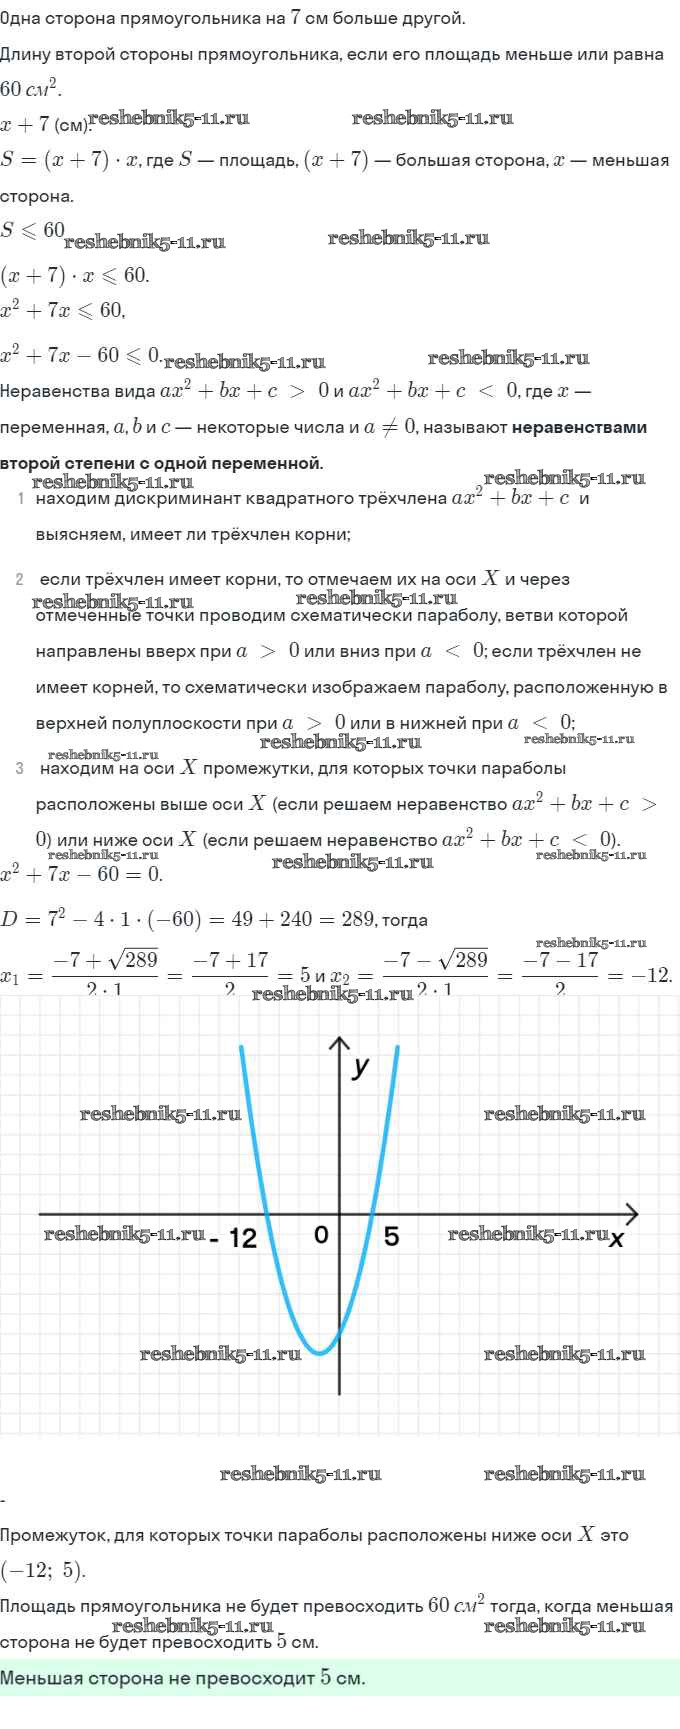 Одна сторона прямоугольника на 7 см больше другой.
Длину второй стороны прямоугольника, если его площадь меньше или равна
60 см².
x + 7 (см).
reshebnik5-11.ru reshebnik5-11.ru
S = (x + 7) · x, где S — площадь, (x + 7) — большая сторона, x — меньшая
сторона.
S ⩽ 60
reshebnik5-11.ru reshebnik5-11.ru
(x + 7) · x ⩽ 60.
x² + 7x ⩽ 60,
x² + 7x − 60 ⩽ 0.
reshebnik5-11.ru reshebnik5-11.ru
Неравенства вида ax² + bx + c > 0 и ax² + bx + c < 0, где x —
переменная, a, b и c — некоторые числа и a ≠ 0, называют неравенствами
второй степени с одной переменной.
reshebnik5-11.ru reshebnik5-11.ru
1 находим дискриминант квадратного трёхчлена ax² + bx + c и
выясняем, имеет ли трёхчлен корни;
2 если трёхчлен имеет корни, то отмечаем их на оси X и через
reshebnik5-11.ru reshebnik5-11.ru
отмеченные точки проводим схематически параболу, ветви которой
направлены вверх при a > 0 или вниз при a < 0; если трёхчлен не
имеет корней, то схематически изображаем параболу, расположенную в
верхней полуплоскости при a > 0 или в нижней при a < 0;
reshebnik5-11.ru reshebnik5-11.ru
reshebnik5-11.ru
3 находим на оси X промежутки, для которых точки параболы
расположены выше оси X (если решаем неравенство ax² + bx + c >
0) или ниже оси X (если решаем неравенство ax² + bx + c < 0).
reshebnik5-11.ru reshebnik5-11.ru reshebnik5-11.ru
x² + 7x − 60 = 0.
D = 7² − 4 · 1 · (−60) = 49 + 240 = 289, тогда
reshebnik5-11.ru
x₁ = (−7 + √289)/(2 · 1) = (−7 + 17)/2 = 5 и x₂ = (−7 − √289)/(2 · 1) = (−7 − 17)/2 = −12.
reshebnik5-11.ru
y
reshebnik5-11.ru reshebnik5-11.ru
reshebnik5-11.ru - 12 0 5 reshebnik5-11.ru x
reshebnik5-11.ru reshebnik5-11.ru
reshebnik5-11.ru reshebnik5-11.ru
-
Промежуток, для которых точки параболы расположены ниже оси X это
(−12; 5).
Площадь прямоугольника не будет превосходить 60 см² тогда, когда меньшая
reshebnik5-11.ru reshebnik5-11.ru
сторона не будет превосходить 5 см.
Меньшая сторона не превосходит 5 см.